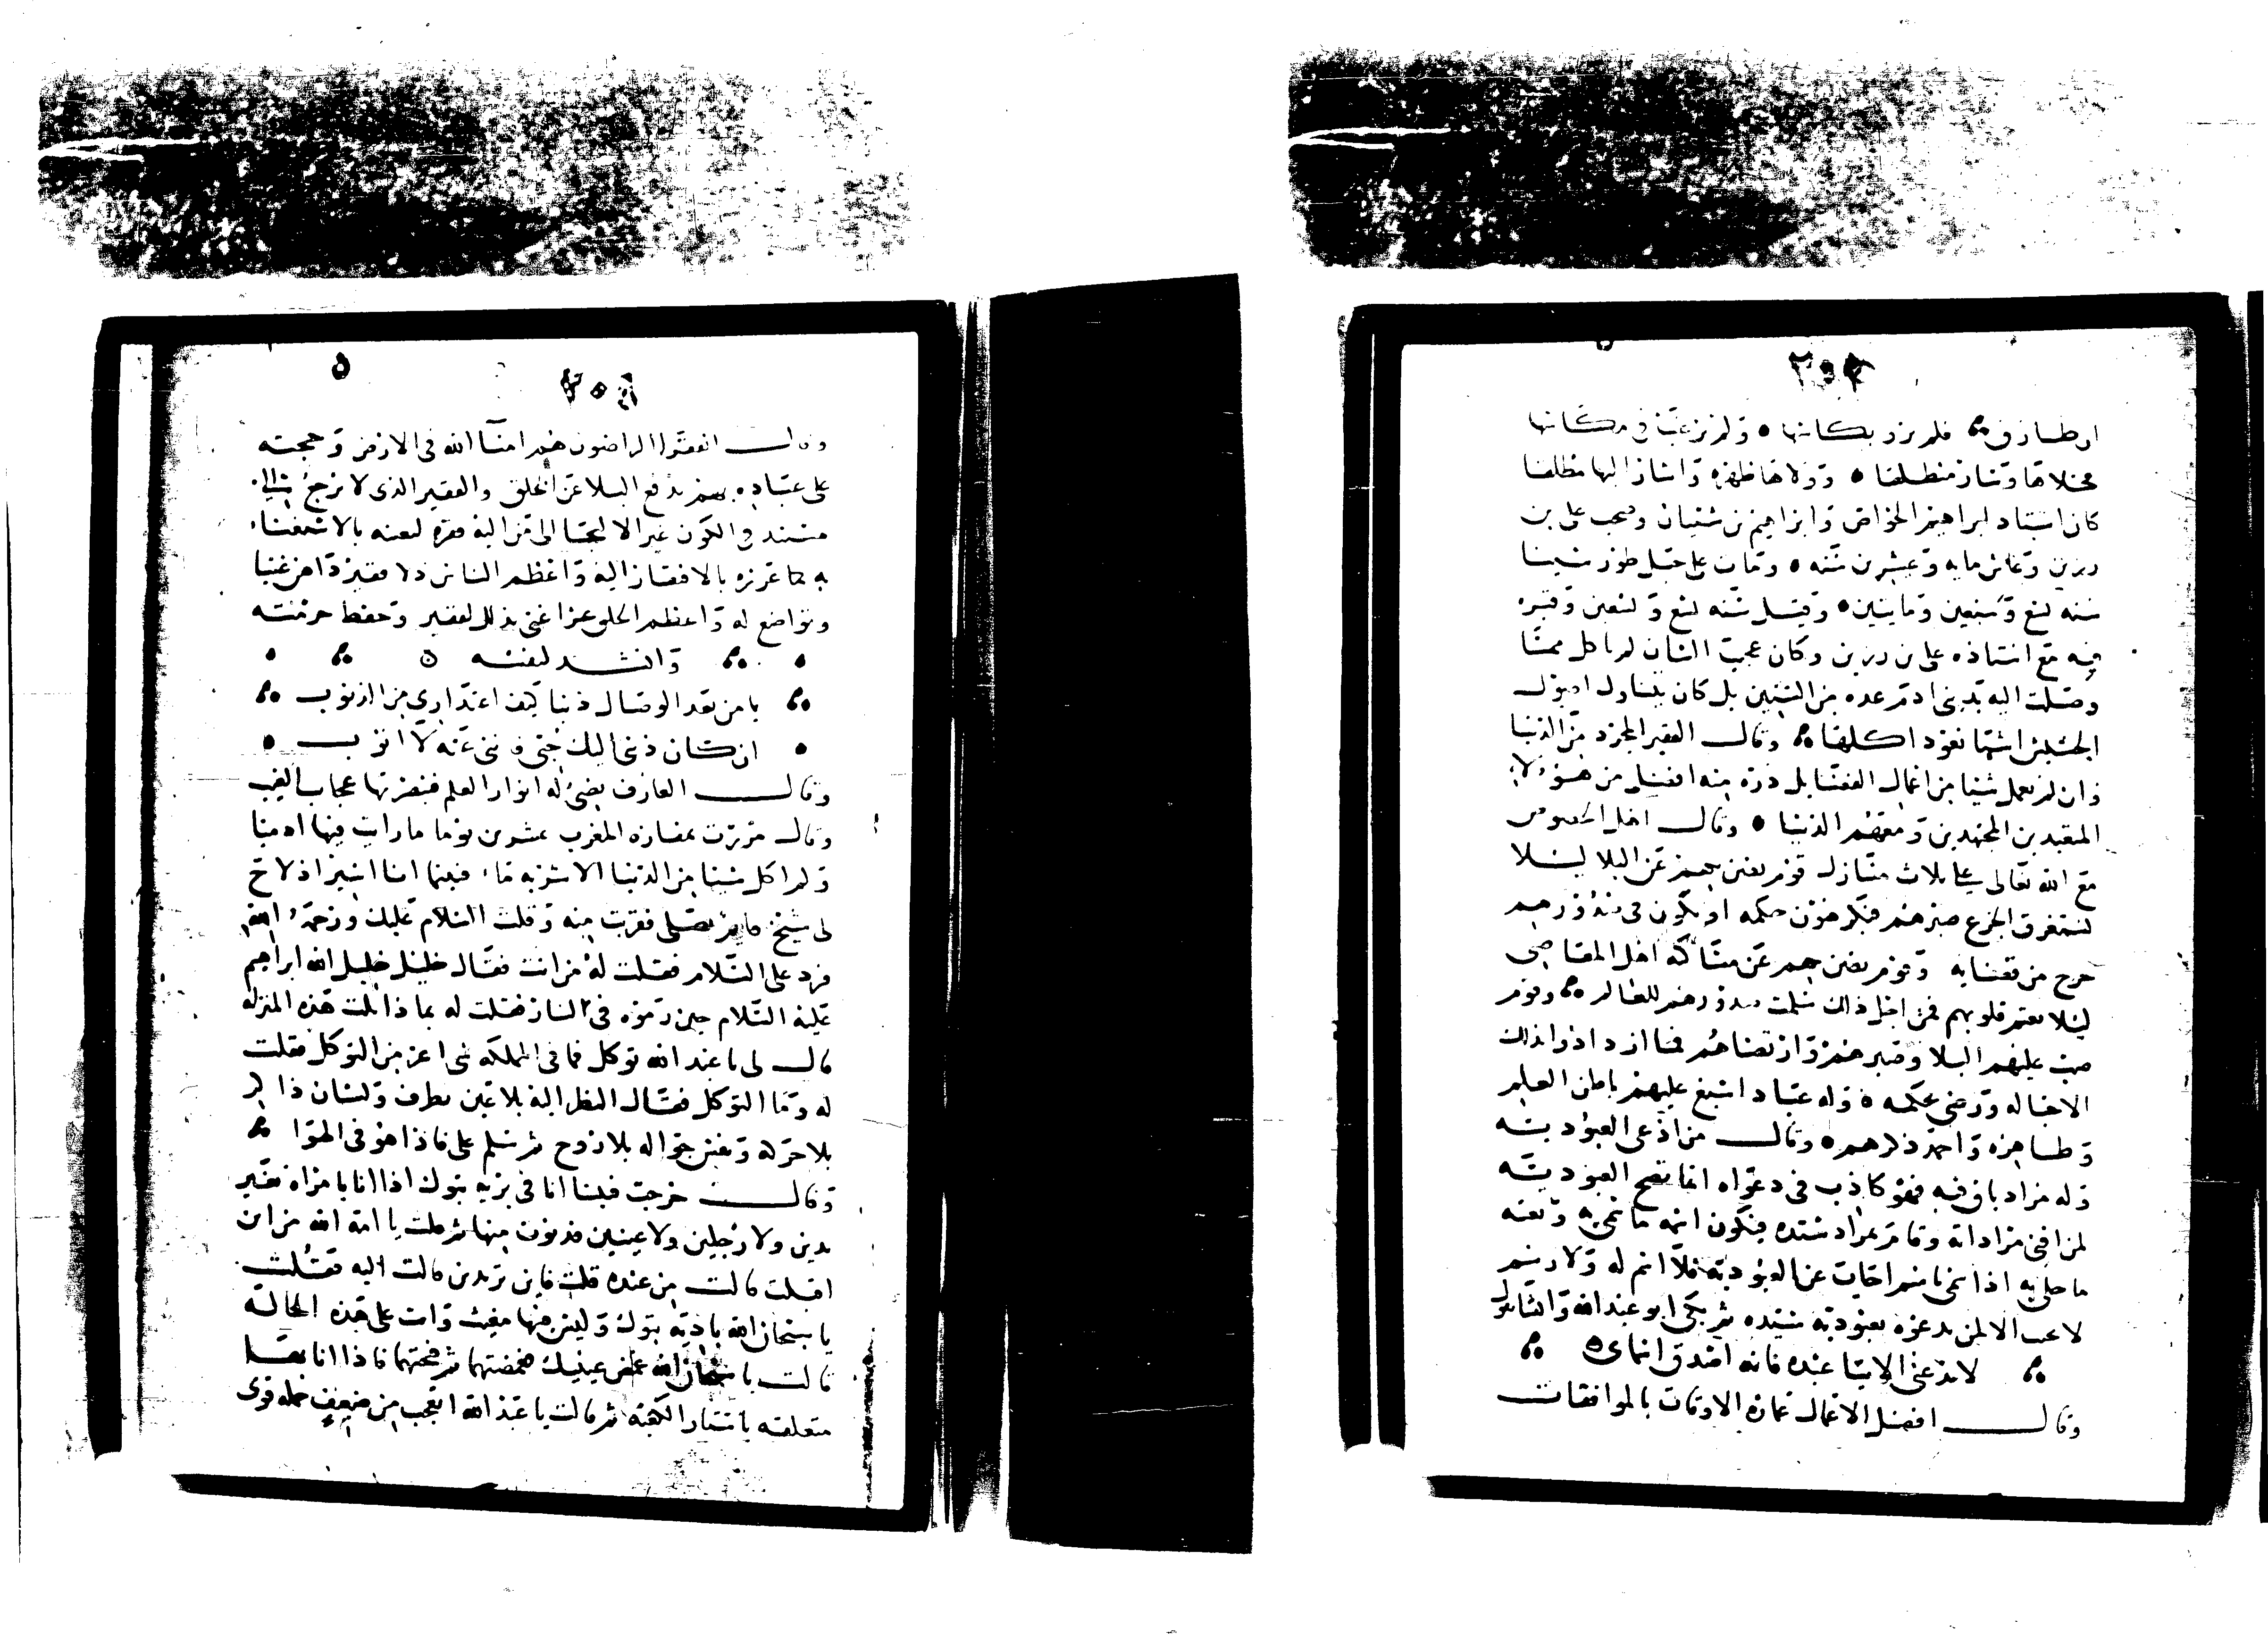 ٢٥٤
او طارق فلم يزد بكانها ولم يرغب في مكانها
محلاها وسار منطلقا وولاها ظهره واشار اليها مطلقا
كان استاد ابراهيم الخواص وابراهيم بن شيبان وصحب على بن
رزين وعاش مايه وعشرين سنه ومات على جبل طور سينا
سنه تسع وسبعين ومايتين وقيل سنه تسع وتسعين وقبره
فيه مع استاذه على بن رزين وكان عجيب الشان لم ياكل مما
وصلت اليه يد بنى ادم عده من السنين بل كان يتناول اصول
الحشيش اشيا تعود اكلها وقال الفقير المجرد من الدنيا
وان لم يعمل شيا من اعمال الفضايل ذره منه افضل من هؤلا
المتعبدين المجتهدين ومعهم الدنيا وقال اهل الخصوص
مع الله تعالى على ثلاث منازل قوم يضن بهم عن البلا ليلا
تستغرق الجزع صبرهم فيكرهون حكمه او يكون في صدورهم
حرج من قضايه وقوم يضن بهم عن مساكنة اهل المعاصي
ليلا تغتم قلوبهم فمن اجل ذلك سلمت صدورهم للعالم وقوم
صب عليهم البلا وصبرهم وارتضاهم فما ازدادوا بذلك
الا حبا له ورضى بحكمه وله عباد اسبغ عليهم باطن العلم
وظاهره واخمد ذكرهم وقال من ادعى العبودية
وله مراد باق فيه فهو كاذب في دعواه انما تصح العبودية
لمن افنى مراداته وقام بمراد سيده فيكون اسمه ما سمى به ونعته
ما حلى به اذا سمى باسم اجاب عن العبودية فلا اسم له ولا رسم
لا يجيب الا لمن يدعوه بعبودية سيده ثم بكى ابو عبد الله وانشا يقول
لا تدعني الا بيا عبده فانه اصدق اسماى
وقال افضل الاعمال عمارة الاوقات بالموافقات
وقال الفقرا الراضون هم امنا الله في الارض وحجته
على عباده بهم يدفع البلا عن الخلق والفقير الذى لا يرجع الى
مستند في الكون غير الالتجا الى من اليه فقره ليغنيه بالاستغناء
به كما عززه بالافتقار اليه واعظم الناس ذلا فقير داهن غنيا
وتواضع له واعظم الخلق عزا غنى تذلل لفقير وحفظ حرمته
وانشد لنفسه
يا من يعد الوصال ذنبا كيف اعتذاري من الذنوب
ان كان ذنبي اليك حبي فانني عنه لا اتوب
وقال العارف يضئ له انوار العلم فينظر بها عجايب الغيب
وقال مررت بمفازه المغرب عشرين يوما ما رايت فيها ادميا
ولم اكل شيا من الدنيا الا شربه ماء فبينما انا اسير اذ لاح
لى شيخ قايم يصلى فقربت منه وقلت السلام عليك ورحمة الله
فرد على السلام فقلت له من انت فقال خليل خليل الله ابراهيم
عليه السلام حين رموه في النار فقلت له بماذا نلت هذه المنزله
قال لى يا عبد الله توكل فما في المملكه شي اعز من التوكل فقلت
له وما التوكل فقال النظر اليه بلا عين تطرف ولسان ذاكر
بلا حركه ونفس جواله بلا روح ثم سلم على فاذا هو في الهوا
وقال خرجت فبينا انا في بريه تبوك اذا انا بامراه بغير
يدين ولا رجلين ولا عينين فدنوت منها ثم قلت يا امة الله من اين
اقبلت قالت من عنده قلت فاين تريدين قالت اليه فقلت
يا سبحان الله بادية تبوك وليس فيها مغيث وانت على هذه الحالة
قالت يا سبحان الله غمض عينيك فغمضتهما ثم فتحتهما فاذا انا بها
متعلقه باستار الكعبه ثم قالت يا عبد الله اتعجب من ضعيف حمله قوى